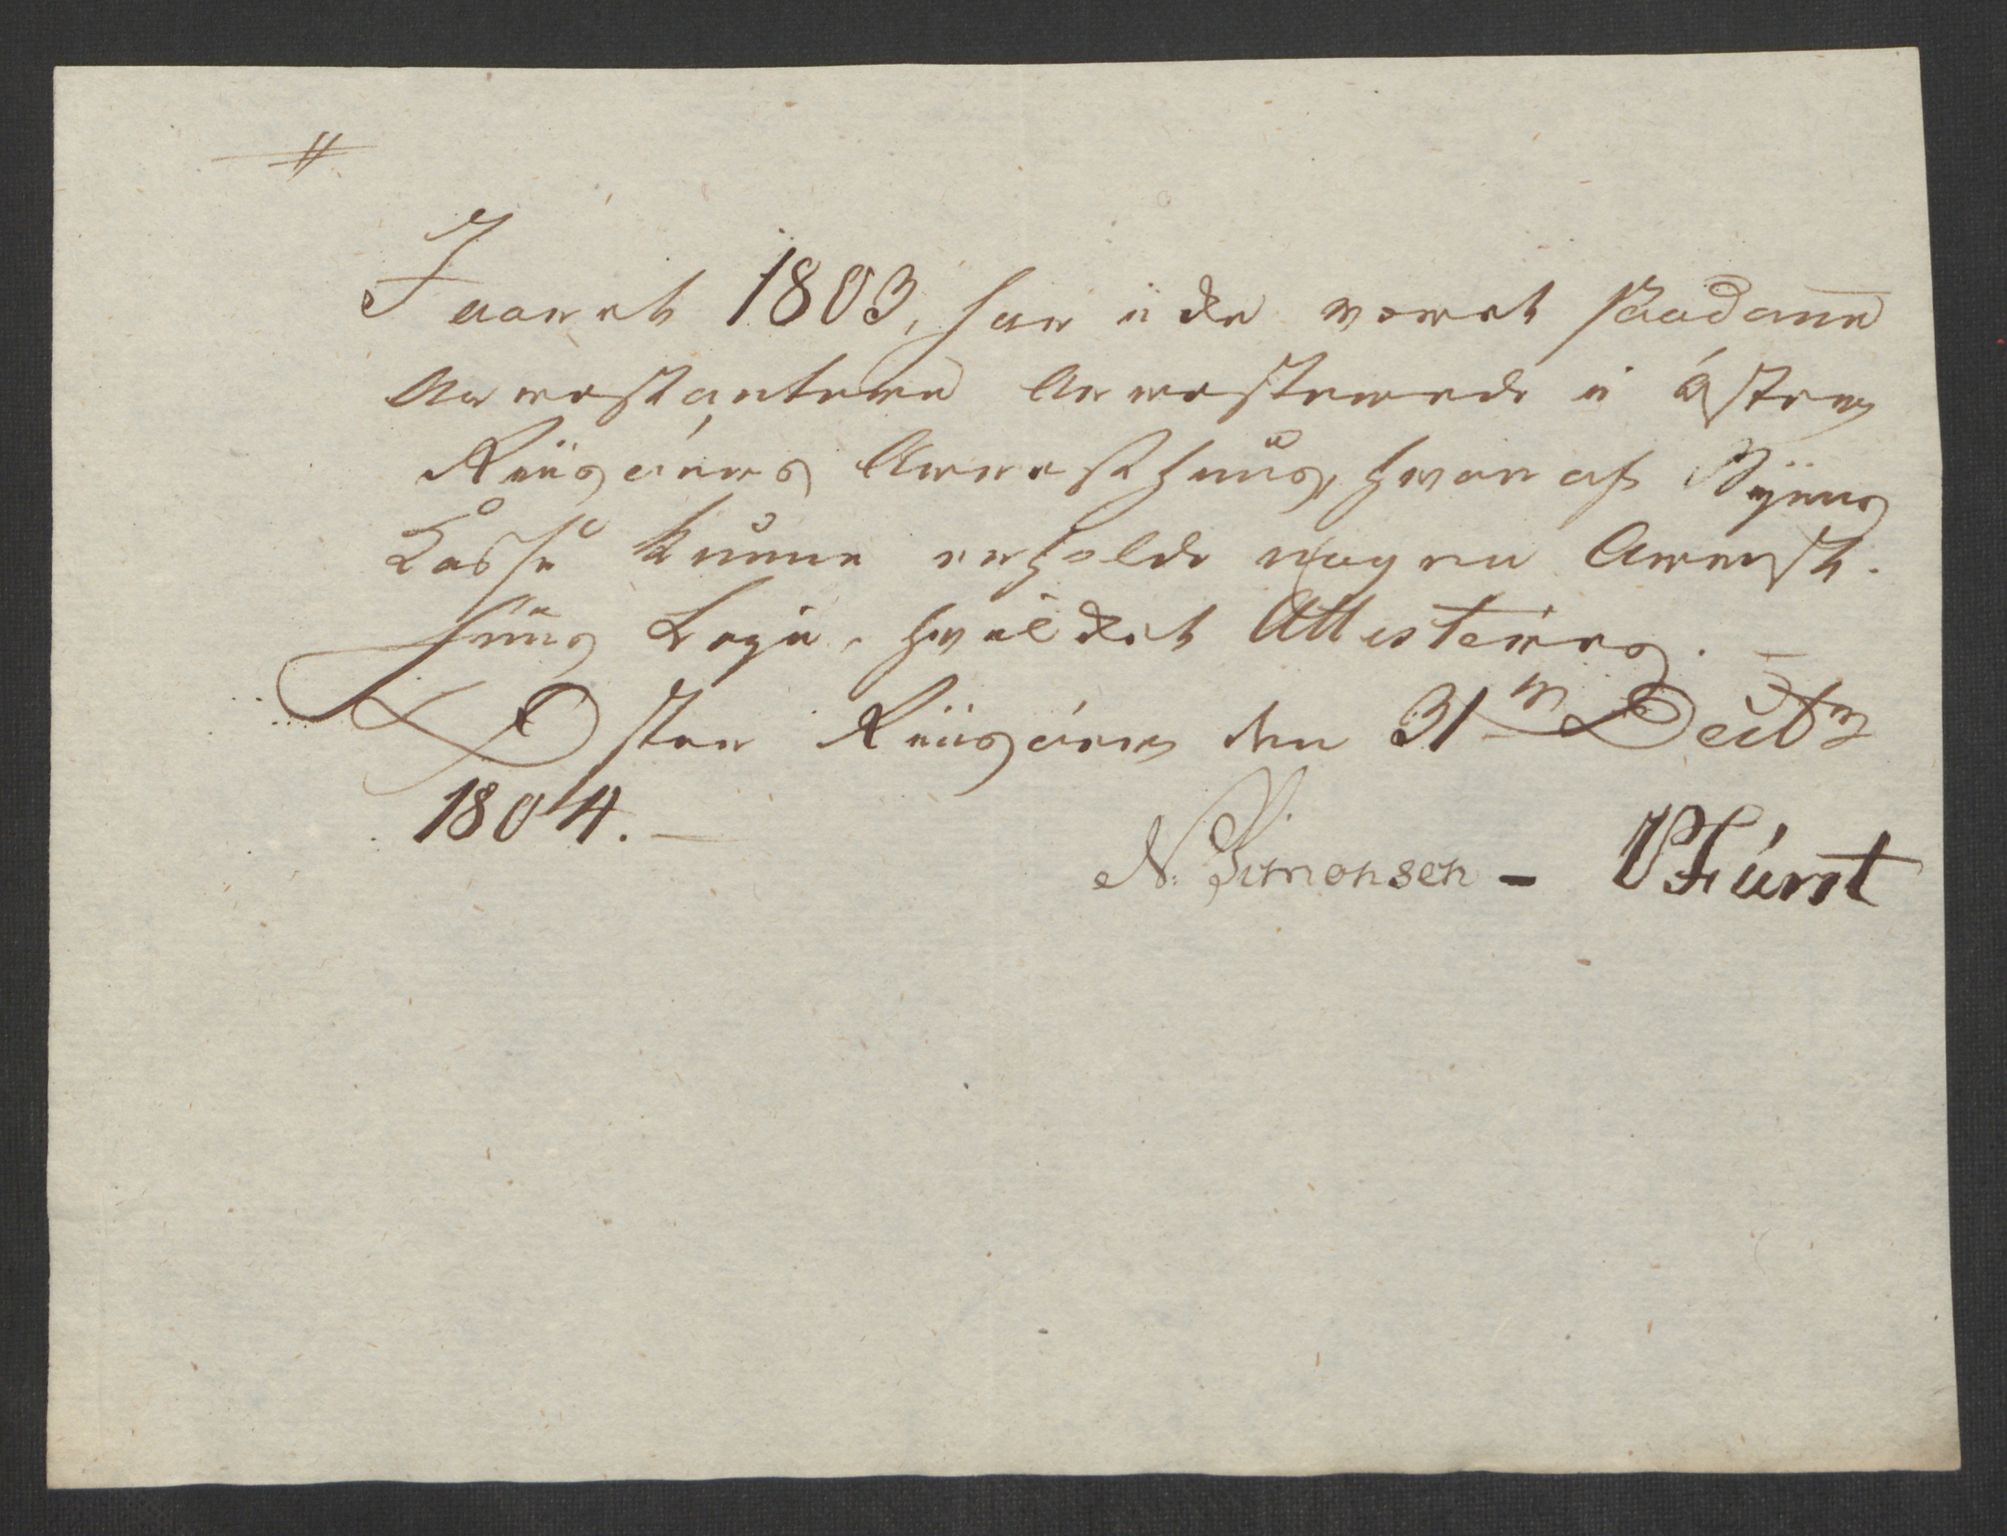 I aaret 1803, har icke været saadanne
Arrestantere Arresterede i Øster
Riisøers Arresthuus, hvor af Byens
Casse kunne erholde nogen Arrest-
huus Leye, hvilcket Attesteres.
Øster Riisøer den 31te Decbr
1804.
N. Simonsen - Fürst